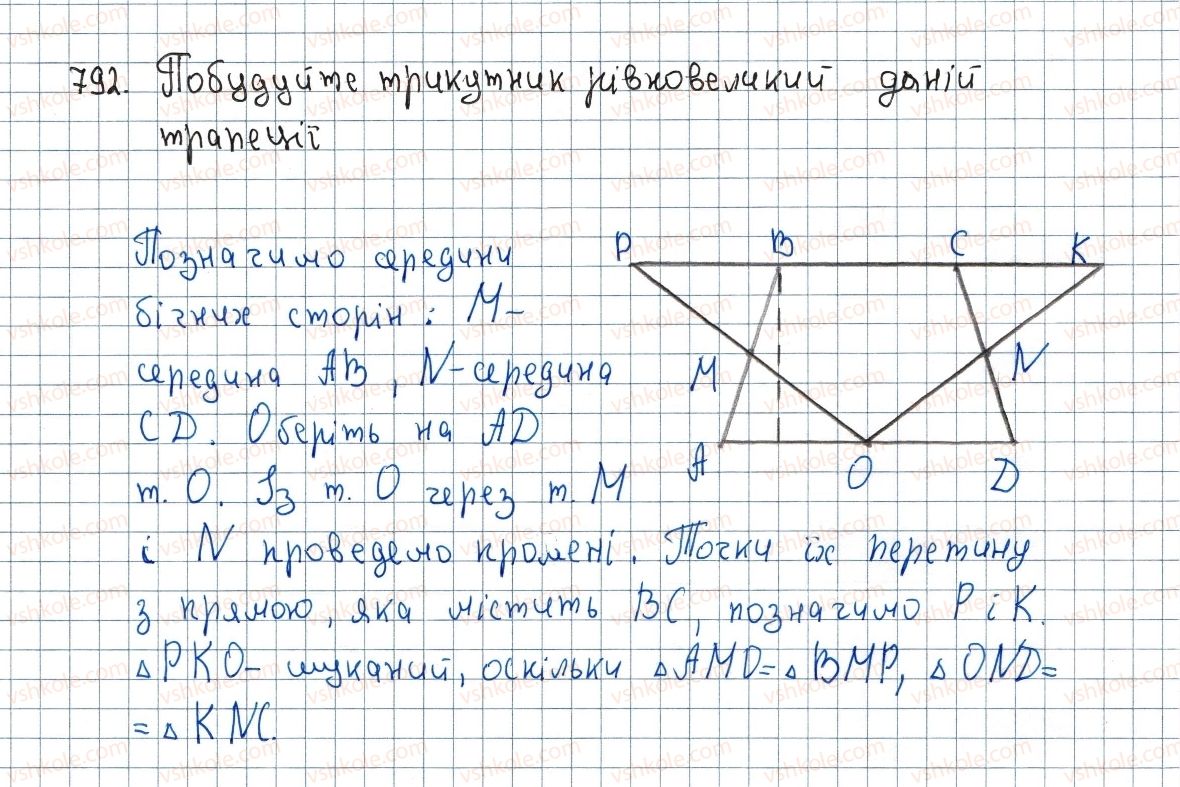 792. Побудуйте трикутник рівновеликий даній
трапеції
Позначимо середини
бічних сторін: M-
середина AB, N-середина
CD. Оберіть на AD
т. O. Із т. O через т. M
і N проведемо промені. Точки їх перетину
з прямою, яка містить BC, позначимо P і K.
△PKO- шуканий, оскільки △AMO=△BMP, △OND=
=△KNC.
P B C K
M N
A O D
vshkole.com